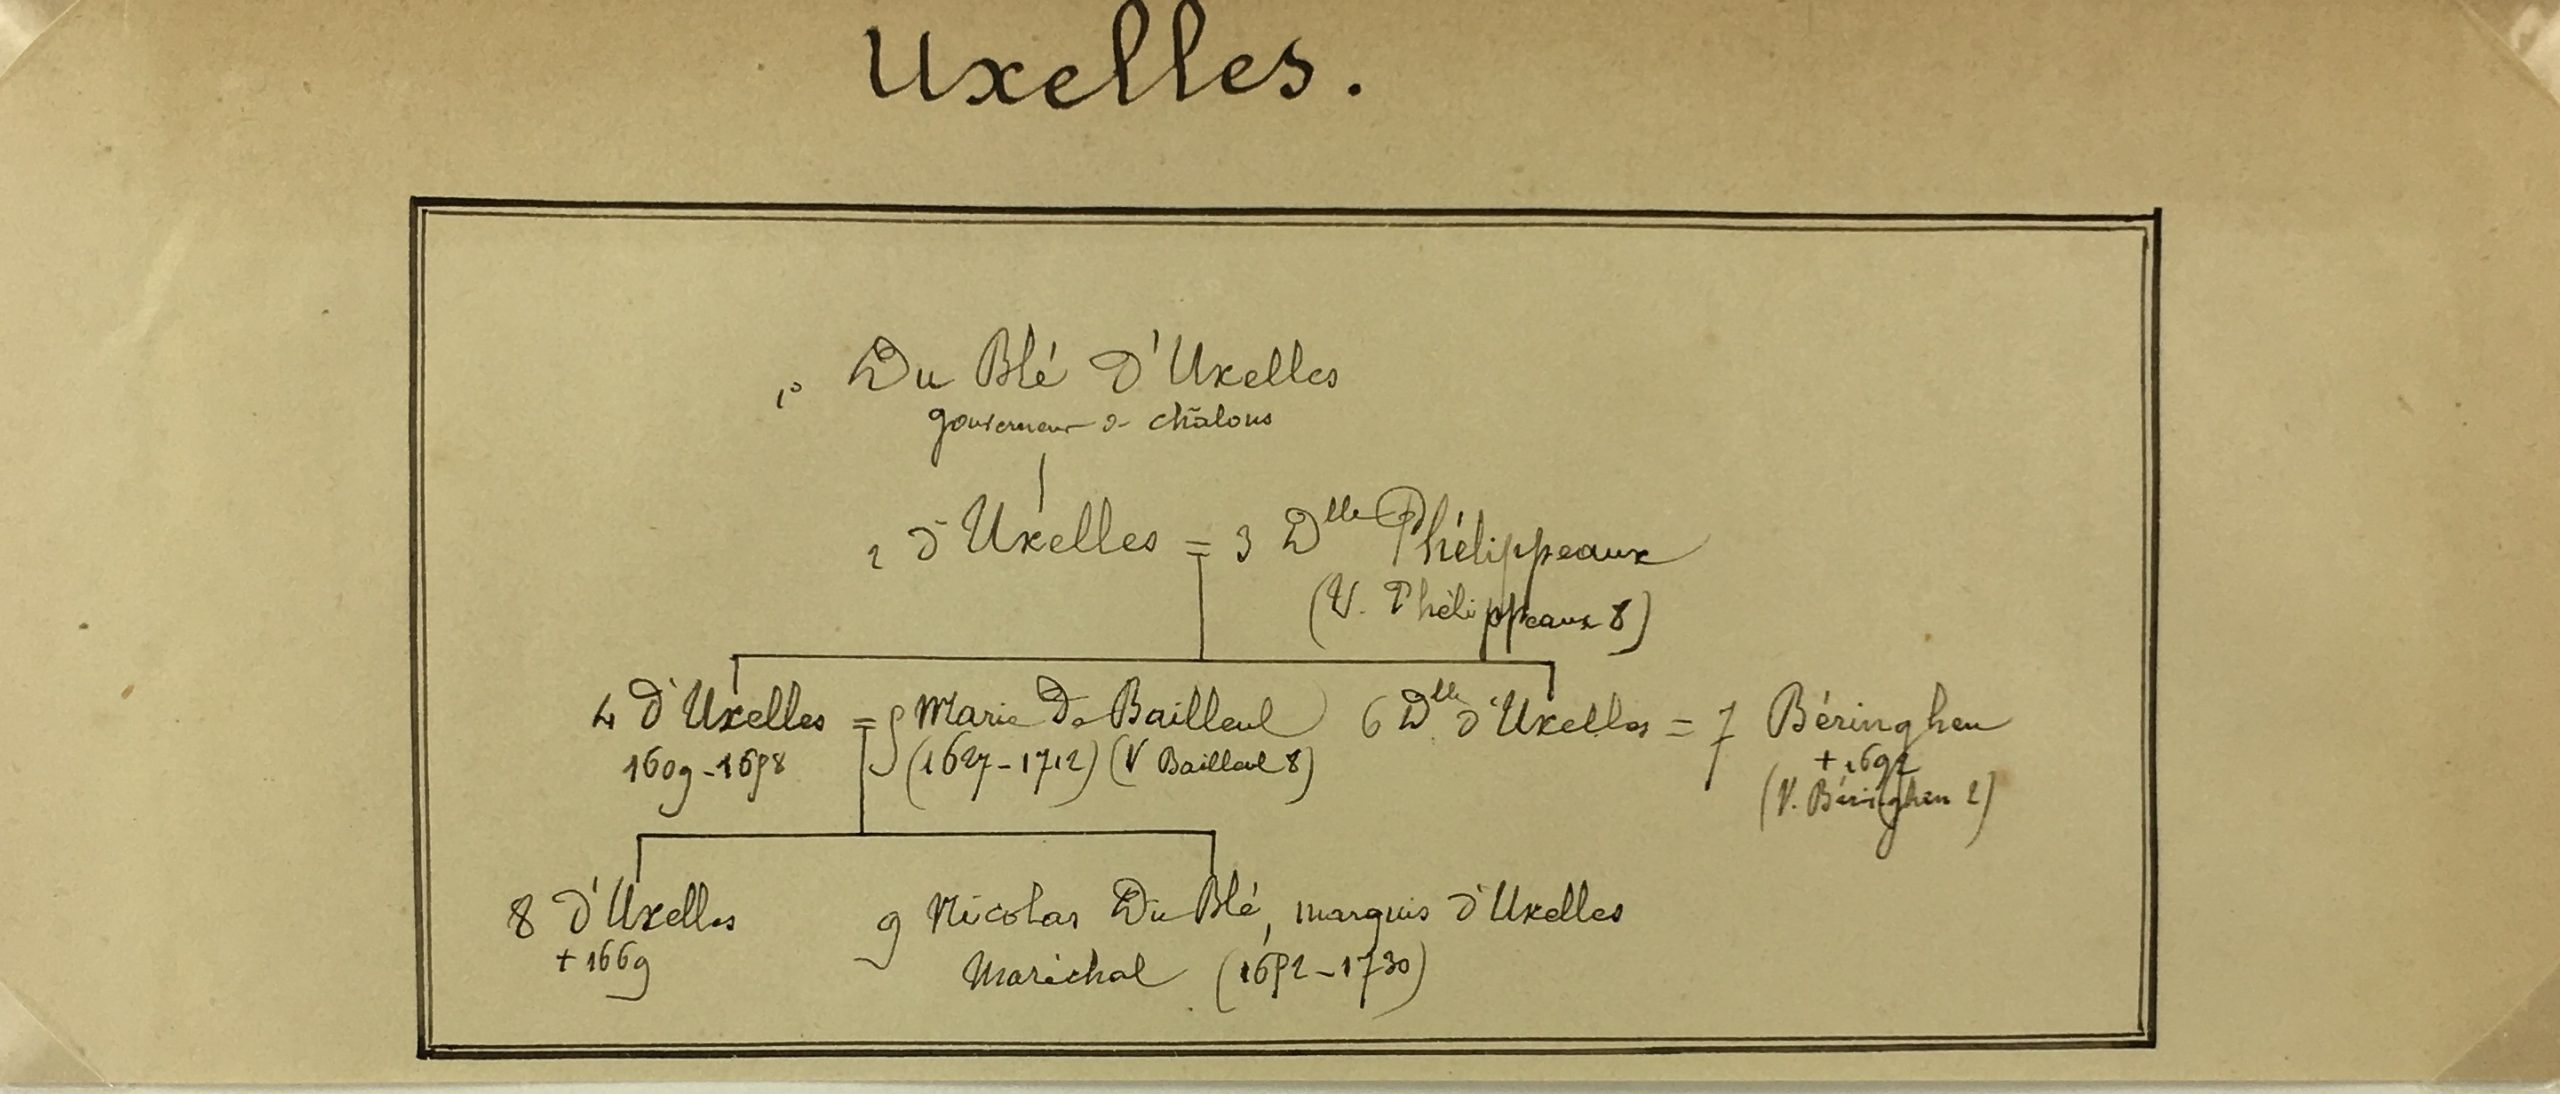 Uxelles.
1° Du Blé d'Uxelles
gouverneur de châlons
2 d'Uxelles = 3 Dlle Phélippeaux
(V. Phélippeaux 8)
4 d'Uxelles = 5 Marie De Bailleul 6 Dlle d'Uxelles = 7 Béringhen
1609-1658 (1627-1712) (V Bailleul 8) + 1692
(V. Béringhen 2)
8 d'Uxelles 9 Nicolas Du Blé, marquis d'Uxelles
+ 1669 Maréchal (1652-1730)